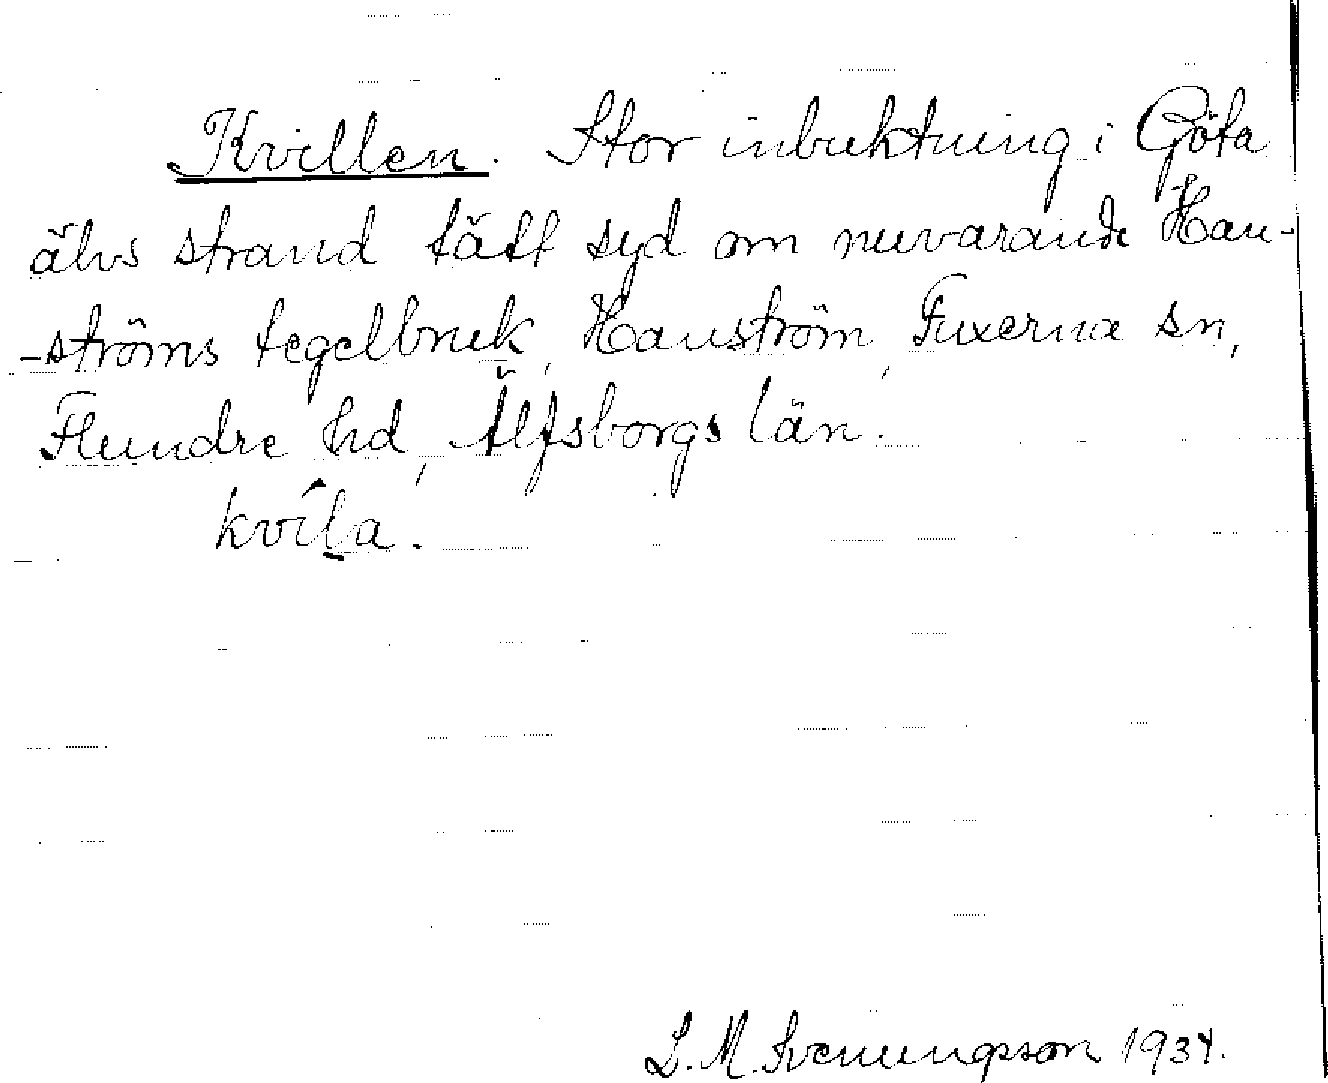 Kvillen. Stor inbuktning i Göta
älvs strand tätt syd om nuvarande Han-
-ströms tegelbruk, Hanström, Fuxerna sn,
Flundre hd, Älfsborgs län.
kvíla.
L. M. Svenungsson 1934.